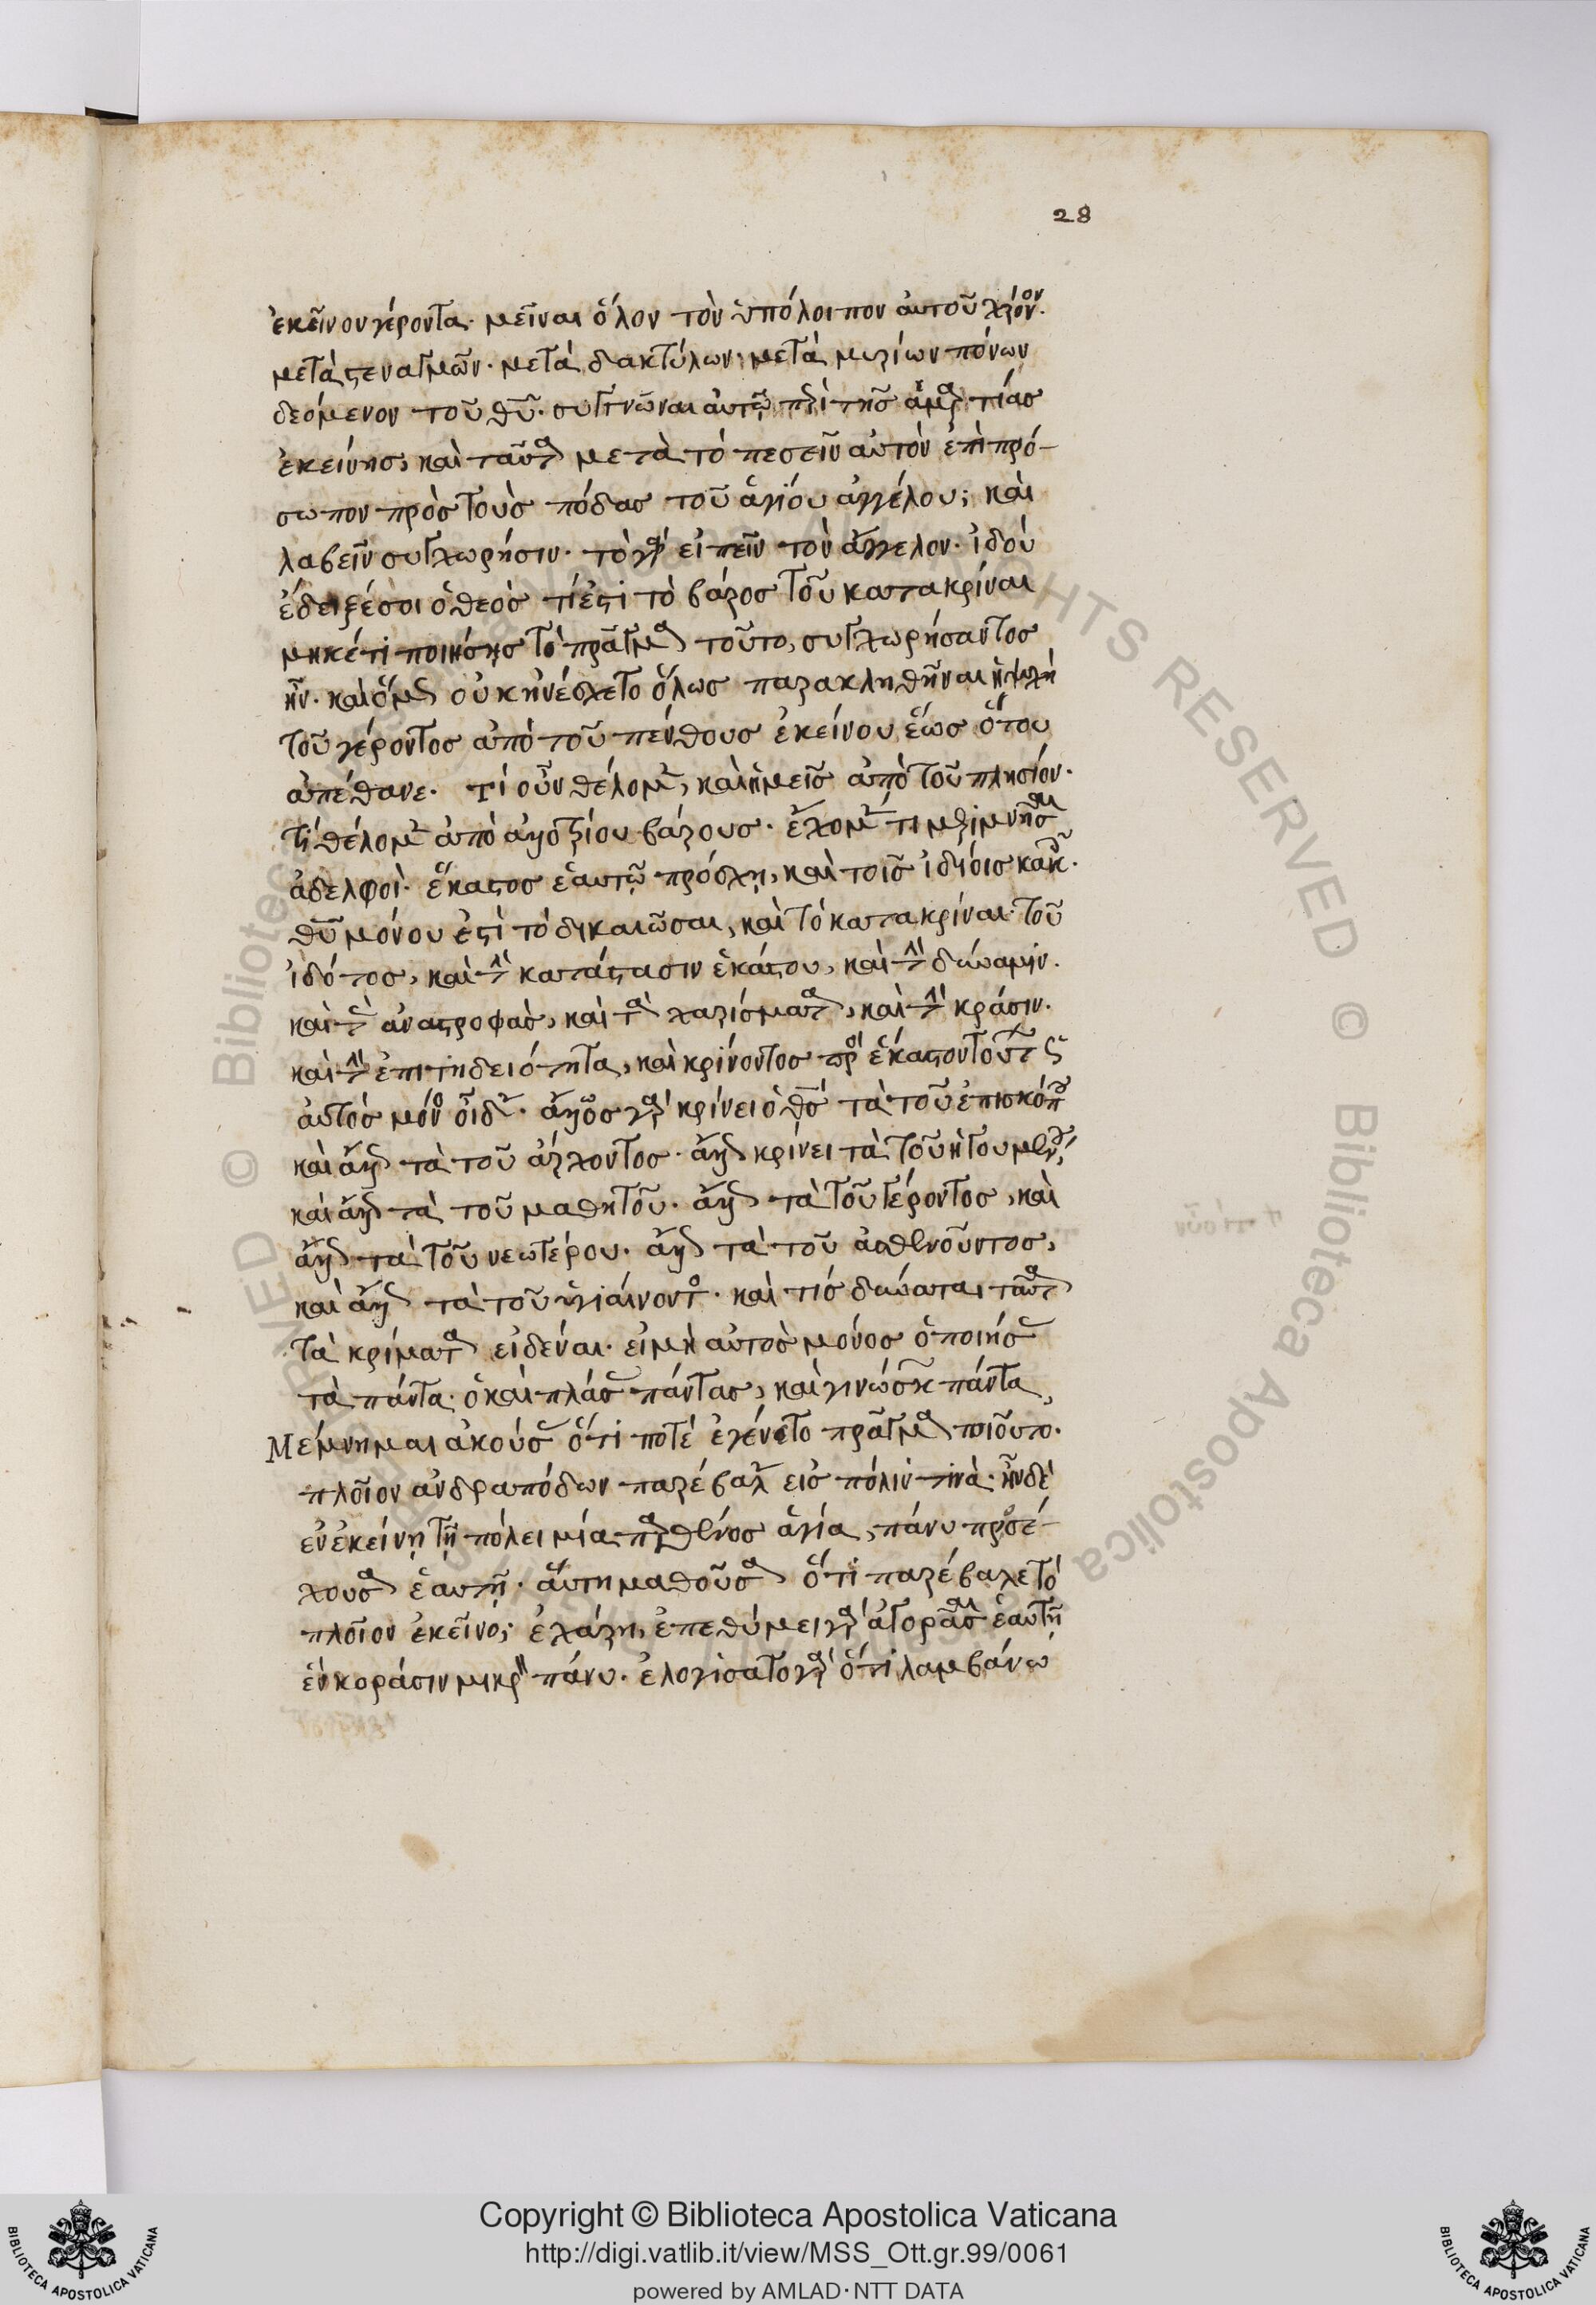 28
ἐκεῖνον γέροντα. μεῖναι ὅλον τὸν ὑπόλοιπον αὐτοῦ χρόνον.
μετὰ στεναγμῶν. μετὰ δακτύλων. μετὰ μυρίων πόνων
δεόμενον τοῦ θυ. συγγνῶναι αὐτῷ περὶ τῆς ἁμαρτίας
ἐκείνης, καὶ ταῦτα μετὰ τὸ πεσεῖν αὐτὸν ἐπὶ πρό-
σωπον πρὸς τοὺς πόδας τοῦ ἁγίου ἀγγέλου; καὶ
λαβεῖν συγχωρήσιν. τὸ γὰρ εἰπεῖν τὸν ἄγγελον. ἰδοὺ
ἔδειξέ σοι ὁ θεὸς τί ἐστι τὸ βάρος τοῦ κατακρίναι
μηκέτι ποιήσῃς τὸ πρᾶγμα τοῦτο, συγχωρήσαντος
ἦν. καὶ ὅμως οὐκ ἠνέσχετο ὅλως παρακληθῆναι ἡ ψυχὴ
τοῦ γέροντος ἀπὸ τοῦ πένθους ἐκείνου, ἕως ὅτου
ἀπέθανε. τί οὖν θέλομεν, καὶ ἡμεῖς ἀπὸ τοῦ πλησίον.
τί θέλομεν ἀπὸ ἀλλοτρίου βάρους. ἔχομεν τι μεριμνῆσαι
ἀδελφοὶ. ἕκαστος ἑαυτῷ πρόσχῃ, καὶ τοῖς ἰδίοις κακοῖς.
θυ μόνου ἐστὶ τὸ δικαιῶσαι, καὶ τὸ κατακρίναι. τοῦ
ἰδότος, καὶ τὴν κατάστασιν ἑκάστου, καὶ τὴν δύναμιν.
καὶ τὰς ἀναστροφὰς, καὶ τὰ χαρίσματα, καὶ τὴν κράσιν.
καὶ τὴν ἐπιτηδειότητα, καὶ κρίνοντος πρὸς ἕκαστον τούτων ὡς
αὐτὸς μόνος οἶδεν. ἄλλως γὰρ κρίνει ὁ θς τὰ τοῦ ἐπισκόπου
καὶ ἄλλως τὰ τοῦ ἄρχοντος. ἄλλως κρίνει τὰ τοῦ ἡγουμένου,
καὶ ἄλλως τὰ τοῦ μαθητοῦ. ἄλλως τὰ τοῦ γέροντος, καὶ
ἄλλως τὰ τοῦ νεωτέρου. ἄλλως τὰ τοῦ ἀσθενοῦντος,
καὶ ἄλλως τὰ τοῦ ὑγιαίνοντος. καὶ τίς δύναται ταῦτα
τὰ κρίματα εἰδέναι. εἰ μὴ αὐτὸς μόνος ὁ ποιήσας
τὰ πάντα. ὁ καὶ πλάσας πάντας, καὶ γινώσκων πάντα,
Μέμνημαι ἀκούσας ὅτι ποτὲ ἐγένετο πρᾶγμα τοιοῦτο.
πλοῖον ἀνδραπόδων παρέβαλεν εἰς πόλιν τινὰ. ἦν δὲ
ἐν ἐκείνῃ τῇ πόλει μία παρθένος ἁγία, πάνυ προσέ-
χουσα ἑαυτῇ. αὕτη μαθοῦσα ὅτι παρέβαλε τὸ
πλοῖον ἐκεῖνο; ἐχάρη, ἐπεθύμει γὰρ ἀγορᾶσαι ἑαυτῇ
ἓν κοράσιν μικρὴν πάνυ. ἐλογίσατο γὰρ ὅτι λαμβάνω
Copyright © Biblioteca Apostolica Vaticana
http://digi.vatlib.it/view/MSS_Ott.gr.99/0061
powered by AMLAD·NTT DATA
BIBLIOTECA APOSTOLICA VATICANA
BIBLIOTECA APOSTOLICA VATICANA